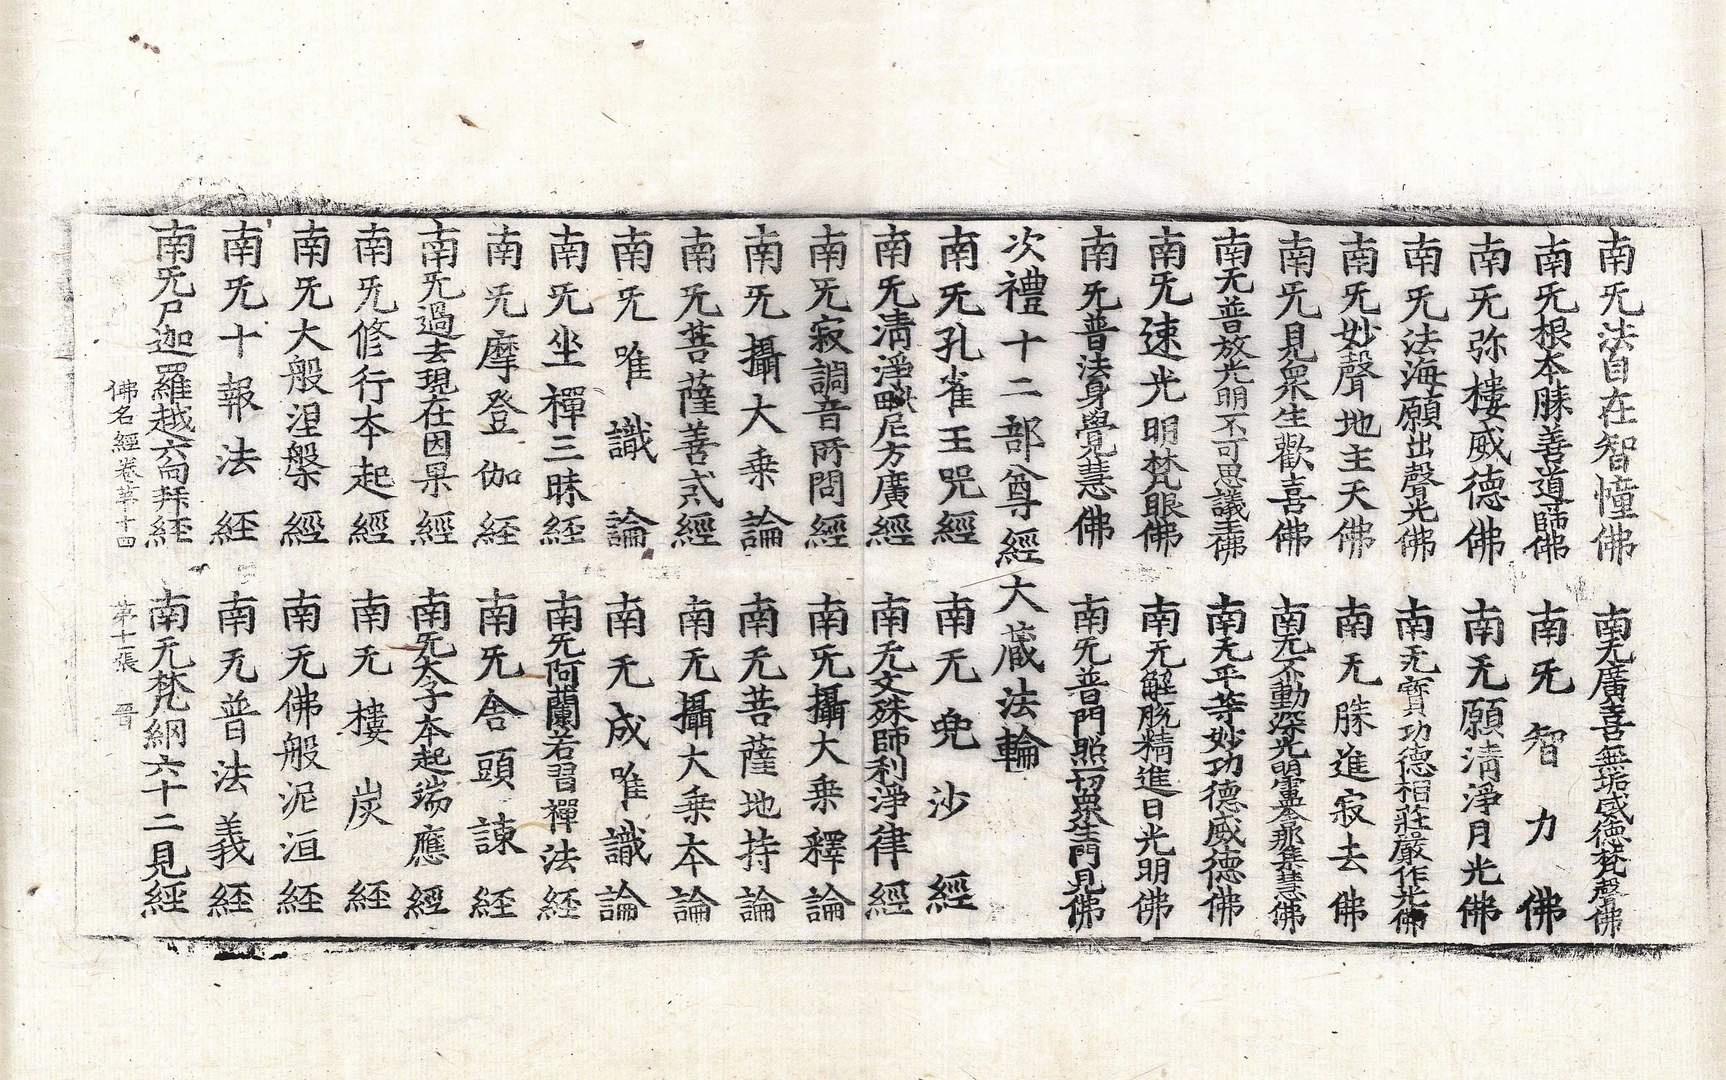 南无法自在智憧佛　南无廣喜無垢威德梵聲佛
南无根本勝善道師佛　南无智力佛
南无弥樓威德佛　南无願清淨月光佛
南无法海願出聲光佛　南无寳功德相莊嚴作光佛
南无妙聲地主天佛　南无勝進寂去佛
南无見衆生歡喜佛　南无不動深光明盧舍那集慧佛
南无普放光明不可思議王佛　南无平等妙功德威德佛
南无速光明梵眼佛　南无解脫精進日光明佛
南无普法身覺慧佛　南无普門照一切衆生門見佛
次禮十二部尊經大藏法輪
南无孔雀王咒經　南无兜沙經
南无清淨毗尼方廣經　南无文殊師利淨律經
南无寂調音所問經　南无攝大乗釋論
南无攝大乗論　南无菩薩地持論
南无菩薩善戒經　南无攝大乗本論
南无唯識論　南无成唯識論
南无坐禪三昧経　南无阿蘭若習禪法経
南无摩登伽経　南无舍頭諫経
南无過去現在因果經　南无太子本起瑞應經
南无修行本起經　南无樓炭経
南无大般涅槃經　南无佛般泥洹経
南无十報法経　南无普法義経
南无尸迦羅越六向拜経　南无梵網六十二見経
佛名經卷苐十四　苐十二張　晉